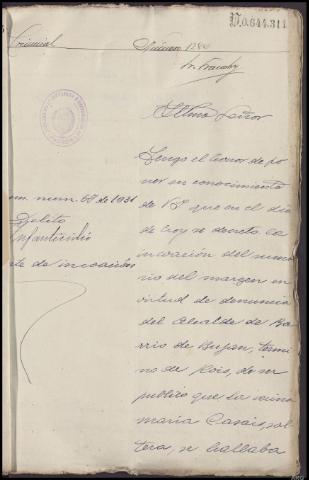 D.0.644.311
Criminal
Ilmo Señor
Tengo el honor de po
ner en conocimiento
de V. que en el dia
de hoy se decreto la
incoación del suma
rio del margen en
virtud de denuncia
del Alcalde de Ba
rrio de Bujan, termi
no de Rois, de ser
publico que su vecina
Maria Casais, sol
tera, se hallaba
num. 68 de 1931
Delito
Infanticidio
te de incoación